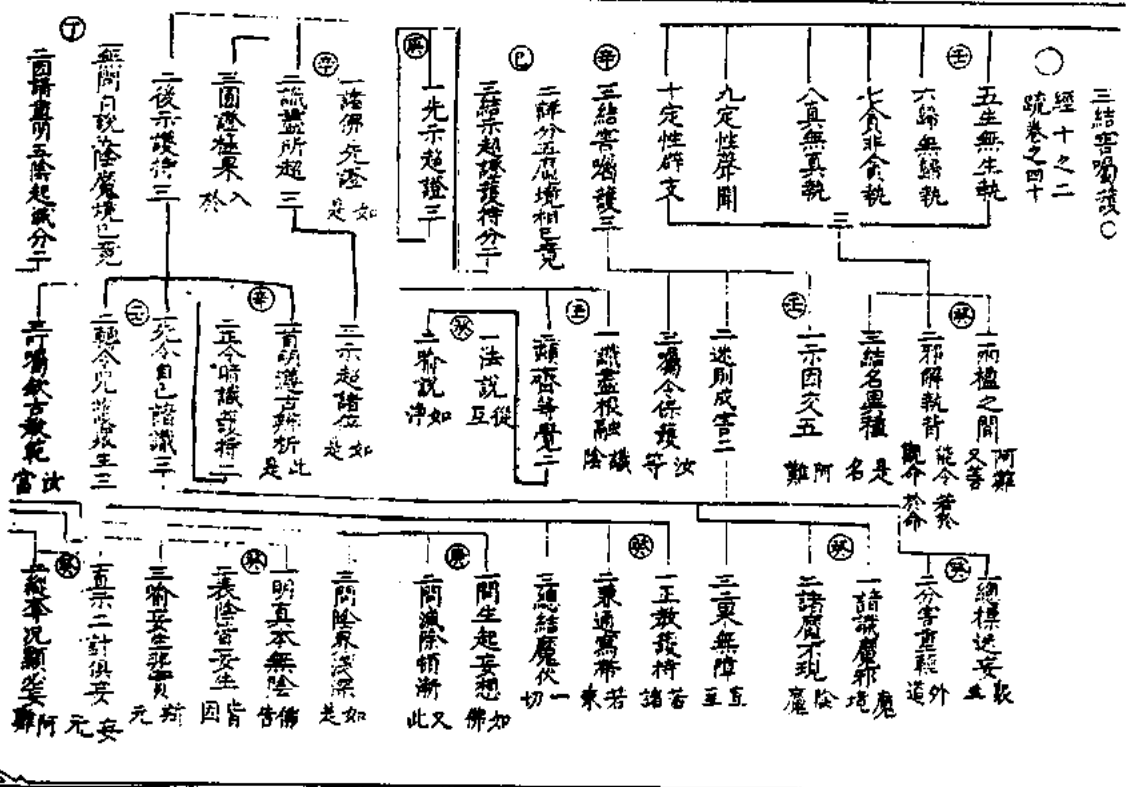 三結害囑護○
○
經十之二
疏卷之四十
壬
五生無生執
六歸無歸執
七貪非貪執
八真無真執
九定性聲聞
十定性辟支
三
辛
三結害囑護三
二詳分五魔境相已竟
己
三結示超證護持分二
庚
一先示超證三
一諸佛先證 如是
辛
二識盡所超三
三圓證極果 入於
二後示護持三
丁
一無問自說五陰魔境已竟
二因請重明五陰起滅分二
一兩楹之間 阿難又善
癸
二邪解執背 能令若於觀命於命
三結名異種 是名
壬
一示因交五 阿難
二迷則成害二
三囑令保護 汝等
一識盡根融 識陰
壬
二類齊等覺二
一法說 從互
癸
二喻說 如淨
三示超諸位 如是
辛
一首明遵古辨析 此是
二正令時識護持二
一先令自己諳識三
壬
二轉令咒 眾生三
三叮囑欽古教範 汝當
一總標迷妄
癸
二分害重輕 外道
一諳識魔邪 魔境
癸
二諸魔不現 陰魔
三東無障 直至
一正教護持 若諸
癸
二兼通寫帶 若東
三總結魔伏 一切
一問生起妄想 如佛
庚
二問滅除頓漸 又此
三問陰界淺深 如是
一明真本無陰 佛告
癸
二表陰皆妄生 皆因
三喻妄生非實 斯元
一直示二計俱妄 妄元
癸
二縱奪況顯 妄 阿難